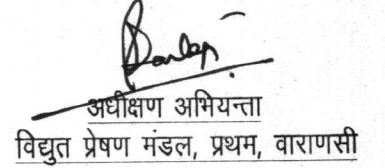 अधीक्षण अभियन्ता
विद्युत प्रेषण मंडल, प्रथम, वाराणसी